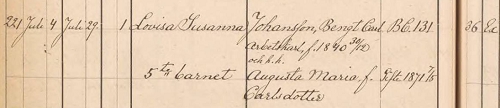 221 Juli 4 Juli 29. 1 Lovisa Susanna Johansson, Bengt Carl BC. 131 36 Ed
Arbetskarl, f. 1840 30/12
och h. h.
5te barnet Augusta Maria f. 1871 7/5
Carlsdotter